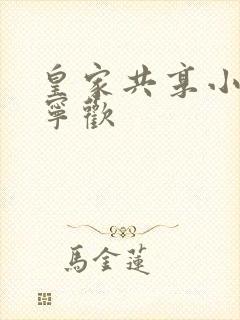 皇家共享小
寧歡
馬金蓮